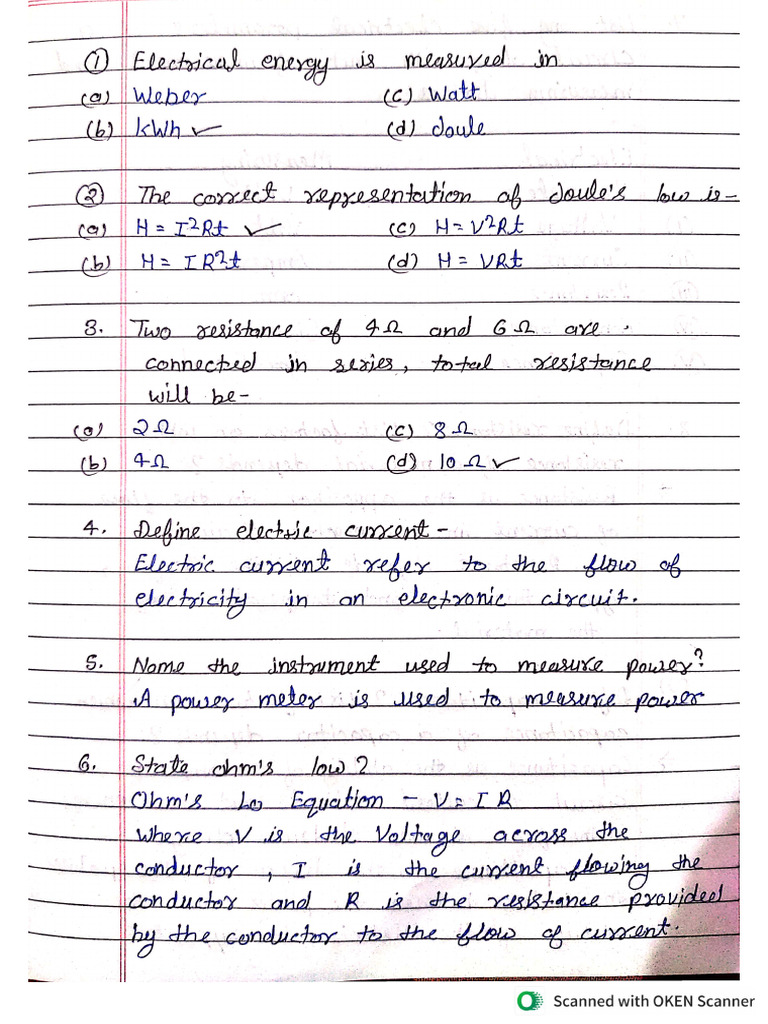 ① Electrical energy is measured in
(a) Weber (c) Watt
(b) kWh ✓ (d) Joule
② The correct representation of Joule's low is-
(a) H = I²Rt ✓ (c) H = V²Rt
(b) H = IR²t (d) H = VRt
3. Two resistance of 4Ω and 6Ω are
connected in series, total resistance
will be-
(a) 2Ω (c) 8Ω
(b) 4Ω (d) 10Ω ✓
4. Define electric current-
Electric current refer to the flow of
electricity in an electronic circuit.
5. Name the instrument used to measure power?
A power meter is used to measure power
6. State ohm's low?
Ohm's Lo Equation - V = I R
where V is the Voltage across the
conductor, I is the current flowing the
conductor and R is the resistance provided
by the conductor to the flow of current.
Scanned with OKEN Scanner